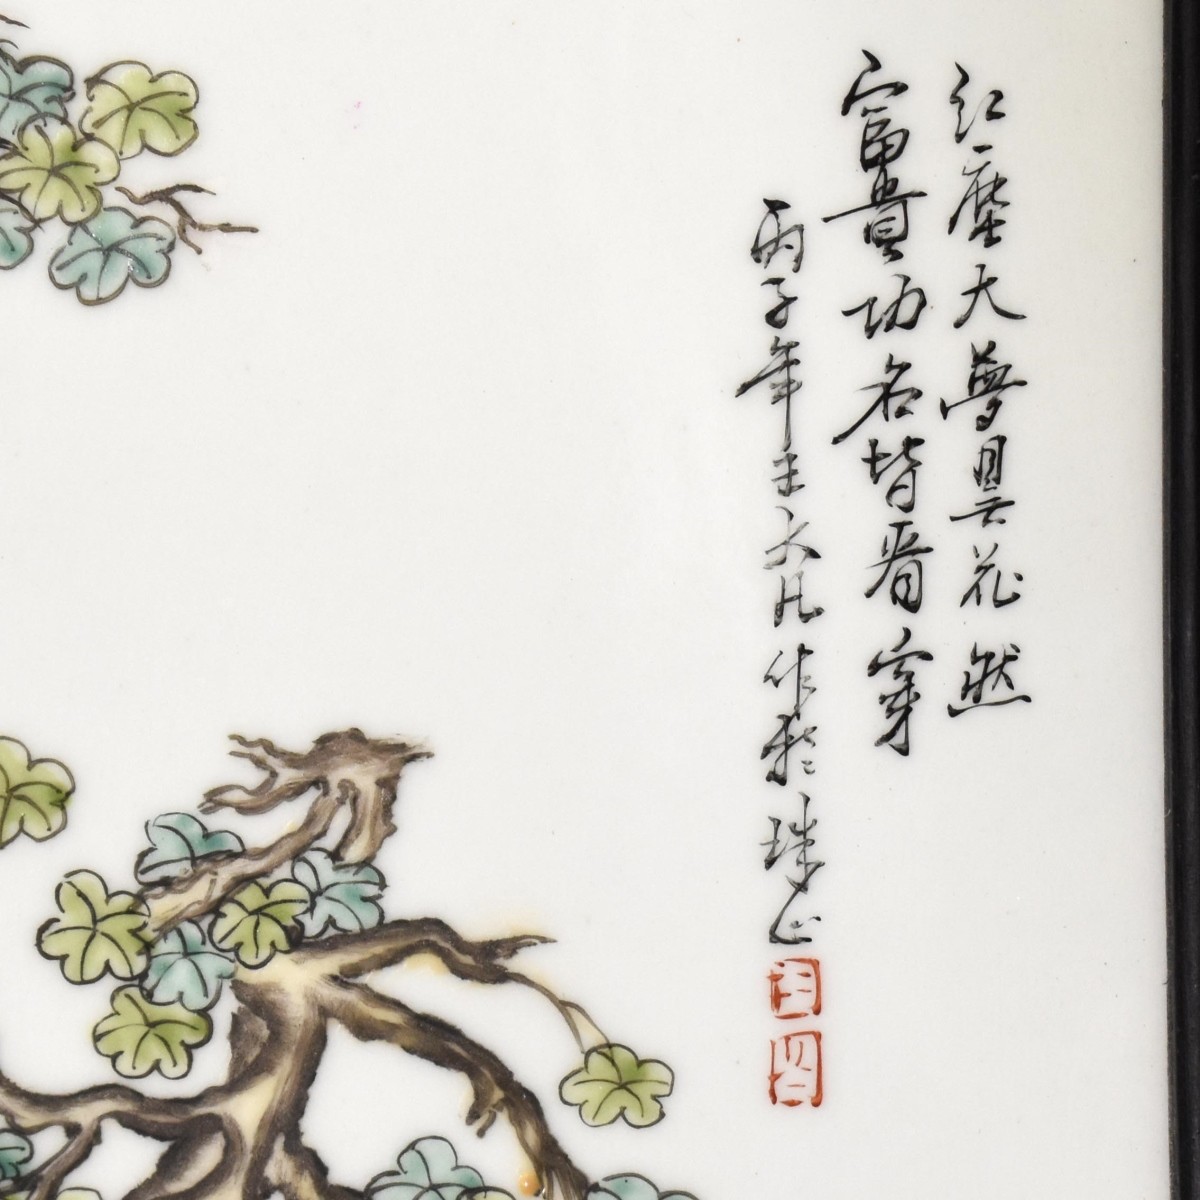 红塵大夢昙花然
富貴功名皆看穿
丙子年王大凡作於珠山